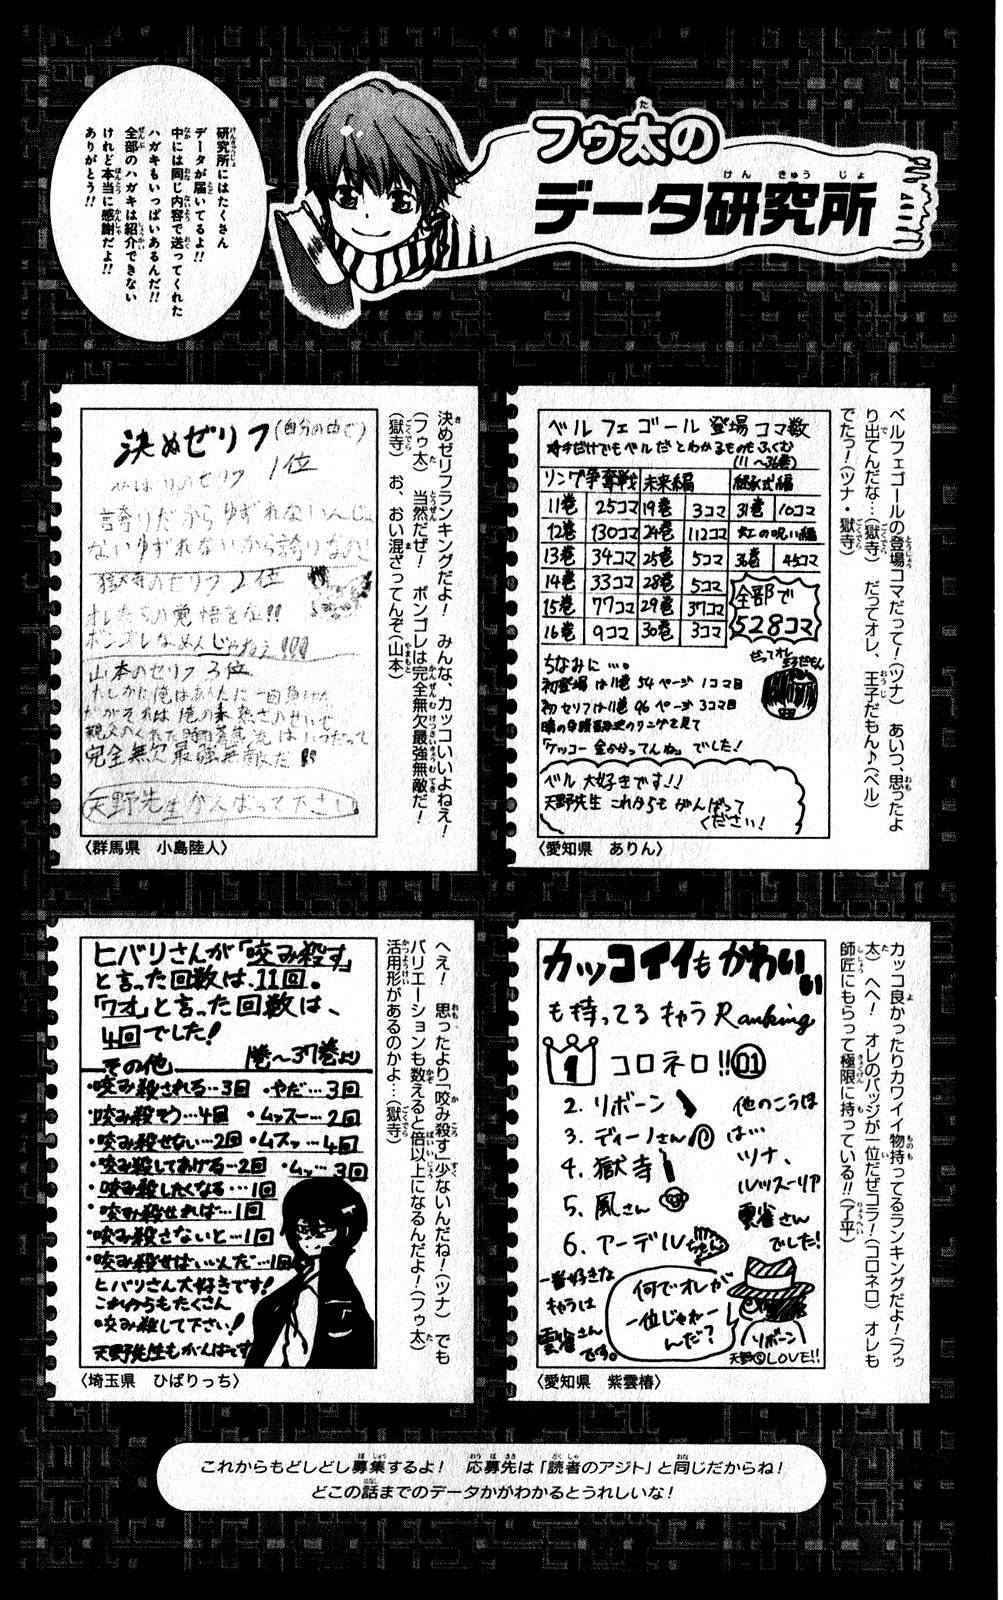 フゥ太の
データ研究所
研究所にはたくさん
データが届いてるよ!!
中には同じ内容で送ってくれた
ハガキもいっぱいあるんだ!!
全部のハガキは紹介できない
けれど本当に感謝だよ!!
ありがとう!!
ベルフェゴールの登場コマだって!(ツナ) あいつ、思ったよ
り出てんだな…(獄寺) だってオレ、王子だもん♪(ベル)
でたっ!(ツナ・獄寺)
ベルフェゴール登場コマ数
手だけでもベルだとわかるものもふくむ
(11〜36巻)
リング争奪戦 未来編 継承式編
11巻 25コマ 19巻 3コマ 31巻 10コマ
12巻 130コマ 24巻 112コマ 虹の呪い編
13巻 34コマ 25巻 5コマ 36巻 45コマ
14巻 33コマ 28巻 5コマ
15巻 77コマ 29巻 37コマ
16巻 9コマ 30巻 3コマ
全部で
528コマ
だってオレ
王子だもん
ちなみに…。
初登場は11巻 54ページ 1コマ目
初セリフは11巻 96ページ 3コマ目
のリングを見て
「ケッコー金かかってんね」でした!
ベル大好きです!!
天野先生これからもがんばって
ください!
〈愛知県 ありん〉
決めゼリフランキングだよ! みんな、カッコいいよねえ!
(フゥ太) 当然だぜ! ボンゴレは完全無欠最強無敵だ!
(獄寺) お、おい混ざってんぞ(山本)
決めゼリフ(自分の中で)
のセリフ 1位
誇りだからゆずれないんじゃ
ないゆずれないから誇りなの!
獄寺のセリフ 2位
オレたちの覚悟を
ボンゴレなめんじゃねえ!!!
山本のセリフ 3位
たしかに俺はあんたに一回負けた
だがそれは俺の未熟さのせいで
親父のくれた時雨蒼燕流はいつだって
完全無欠最強無敵だ!!
天野先生がんばって下さい
〈群馬県 小島陸人〉
カッコ良かったりカワイイ物持ってるランキングだよ!(フゥ
太) へへ! オレのバッジが一位だぜコラ!(コロネロ) オレも
師匠にもらって極限に持っている!!(了平)
カッコイイもかわいい
も持ってるキャラRanking
1 コロネロ!! 01
2. リボーン
3. ディーノさん
4. 獄寺
5. 風さん
6. アーデル
他のこうほ
は…
ツナ、
ルッスーリア
雲雀さん
でした!
一番好きな
キャラは
雲雀さん
です。
何でオレが
一位じゃねー
んだ?
リボーン
LOVE!!
〈愛知県 紫雲椿〉
へえ! 思ったより「咬み殺す」少ないんだね!(ツナ) でも
バリエーションも数えると倍以上になるんだよ!(フゥ太)
活用形があるのかよ…(獄寺)
ヒバリさんが「咬み殺す」
と言った回数は、11回。
「ワオ」と言った回数は、
4回でした!
1巻〜37巻より
その他
・咬み殺される…3回 ・やだ…3回
・咬み殺そう…4回 ・ムッスー…2回
・咬み殺せない…2回 ・ムスッ…4回
・咬み殺してあげる…2回 ・ムッ…3回
・咬み殺したくなる…1回
・咬み殺せれば…1回
・咬み殺さないと…1回
・咬み殺せばいいんだ…1回
ヒバリさん大好きです!
これからもたくさん
咬み殺して下さい!
天野先生もがんばです
〈埼玉県 ひばりっち〉
これからもどしどし募集するよ! 応募先は「読者のアジト」と同じだからね!
どこの話までのデータかがわかるとうれしいな!